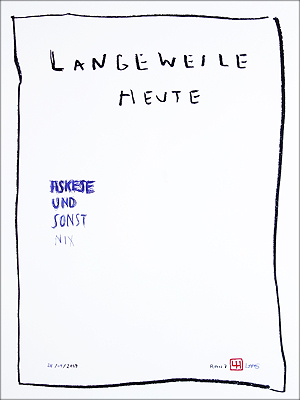 LANGEWEILE
HEUTE
ASKESE
UND
SONST
NIX